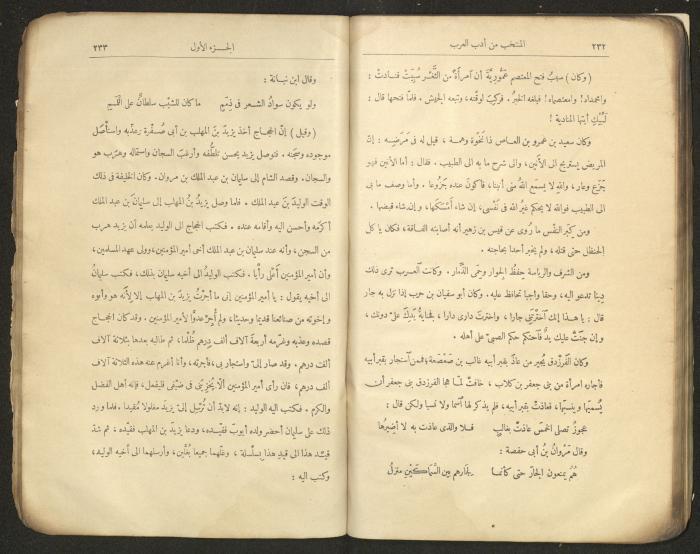 ٢٣٢
المنتخب من أدب العرب
(وكان) سببُ فتح المعتصم عَمُّورِيَّةَ أن امرأةً من الثَّغْر سُبِيَتْ فنادت:
وامحمداه! وامعتصماه! فبلغه الخبر، فركِبَ لوقته، وتبعه الجيش. فلما فتحها قال:
لَبَّيْكِ أيتها المنادية!
وكان سعيد بن عمرو بن العاص ذا نَخْوة وهمة، قيل له فى مَرَضِه: إنّ
المريض يستريح الى الأَنين، والى شرح ما به الى الطبيب. فقال: أما الأنين فهو
جَزَع وعار، والله لا يسمَع اللهُ منى أنينا، فأكونَ عنده جَزُوعًا. وأما وصف ما بى
الى الطبيب فوالله لا يحكم غيرُ الله فى نَفْسى، إن شاء أمسكها، وإن شاء قبضها.
ومن كِبَر النفْس ما رُوى عن قيس بن زهير أنه أصابته الفاقة، فكان يأكل
الحنظل حتى قتله، ولم يخبر أحدا بحاجته.
ومن الشرف والرياسة حِفظُ الجوار وحِمَى الذِّمار. وكانت العرب ترى ذلك
دِينا تدعو اليه، وحقا واجبا تحافظ عليه. وكان أبو سفيان بن حرب إذا نزل به جار
قال: يا هذا إنك اخترْتَنى جارا، واخترت دارى دارا، فجنايةُ يَدِك علىّ دونك،
وإن جنَتْ عليك يدٌ فاحتكم حكم الصبى على أهله.
وكان الفَرَزْدَق يُجِير من عاذ بقبر أبيه غالب بن صَعْصَعَة، فممن استجار بقبر أبيه
فأجاره امرأة من بنى جعفر بن كلاب، خافتْ لمّا هجا الفرزدق بنى جعفر أن
يُسَمِّيَها وينسبَها، فعاذتْ بقبر أبيه، فلم يذكر لها اسما ولا نسبا ولكن قال:
عجوزٌ تصلى الخمسَ عاذتْ بغالب فلا والذى عاذت به لا أَضِيرُها
وقال مَرْوانُ بنُ أبى حفصة:
هُمُ يمنعون الجارَ حتى كأنما لجارهم بين السِّماكَيْنِ منزلُ
الجزء الأول
٢٣٣
وقال ابن نباتة:
ولو يكون سوادُ الشعر فى ذِمَمٍ ما كان للشيْب سلطانٌ على القِمَمِ
(وقيل) إنّ الحجاج أخذ يزيدَ بنَ المهلب بن أبى صُفْرة وعذّبه واستأصل
موجوده وسجَنه. فتوصل يزيد بحسن تلطُّفه وأرغب السجان واستماله وهرب هو
والسجان. وقصد الشام إلى سليمان بن عبد الملك بن مروان. وكان الخليفة فى ذلك
الوقت الوليدَ بنَ عبد الملك. فلما وصل يزيدُ بنُ المهلب إلى سليمانَ بنِ عبد الملك
أكرَمَه وأحسن اليه وأقامه عنده. فكتب الحجاج الى الوليد يعلمه أن يزيد هرب
من السجن، وأنه عند سليمان بن عبد الملك أخى أمير المؤمنين، وولى عهد المسلمين،
وأن أمير المؤمنين أعْلَى رأيا. فكتب الوليدُ الى أخيه سليمان بذلك، فكتب سليمانُ
الى أخيه يقول: يا أمير المؤمنين إنى ما أجرْتُ يزيدَ بنَ المهلب إلا لأنه هو وأبوه
وإخوته من صنائعنا قديما وحديثا، ولم أُجِرْ عدوّا لأمير المؤمنين. وقد كان الحجاج
قصده وعذبه وغرّمه أربعةَ آلاف ألف درهم ظُلما، ثم طالبه بعدها بثلاثة آلاف
ألف درهم. وقد صار إلىّ واستجار بى، فأجرته، وأنا أغرَم عنه هذه الثلاثة آلاف
ألف درهم، فان رأى أمير المؤمنين ألّا يُخْزِيَنى فى ضَيْفى فليفعل، فإنه أهل الفضل
والكرم. فكتب اليه الوليد: إنه لابدّ أن تُرْسِل إلىّ يزيدَ مغلولا مقيدا. فلما ورد
ذلك على سليمان أحضر ولده أيوبَ فقيّده، ودعا يزيدَ بن المهلب فقيّده، ثم شدّ
قيدَ هذا الى قيدِ هذا بسلسلة، وغلّهما جميعا بغُلَّيْن، وأرسلهما الى أخيه الوليد،
وكتب اليه: